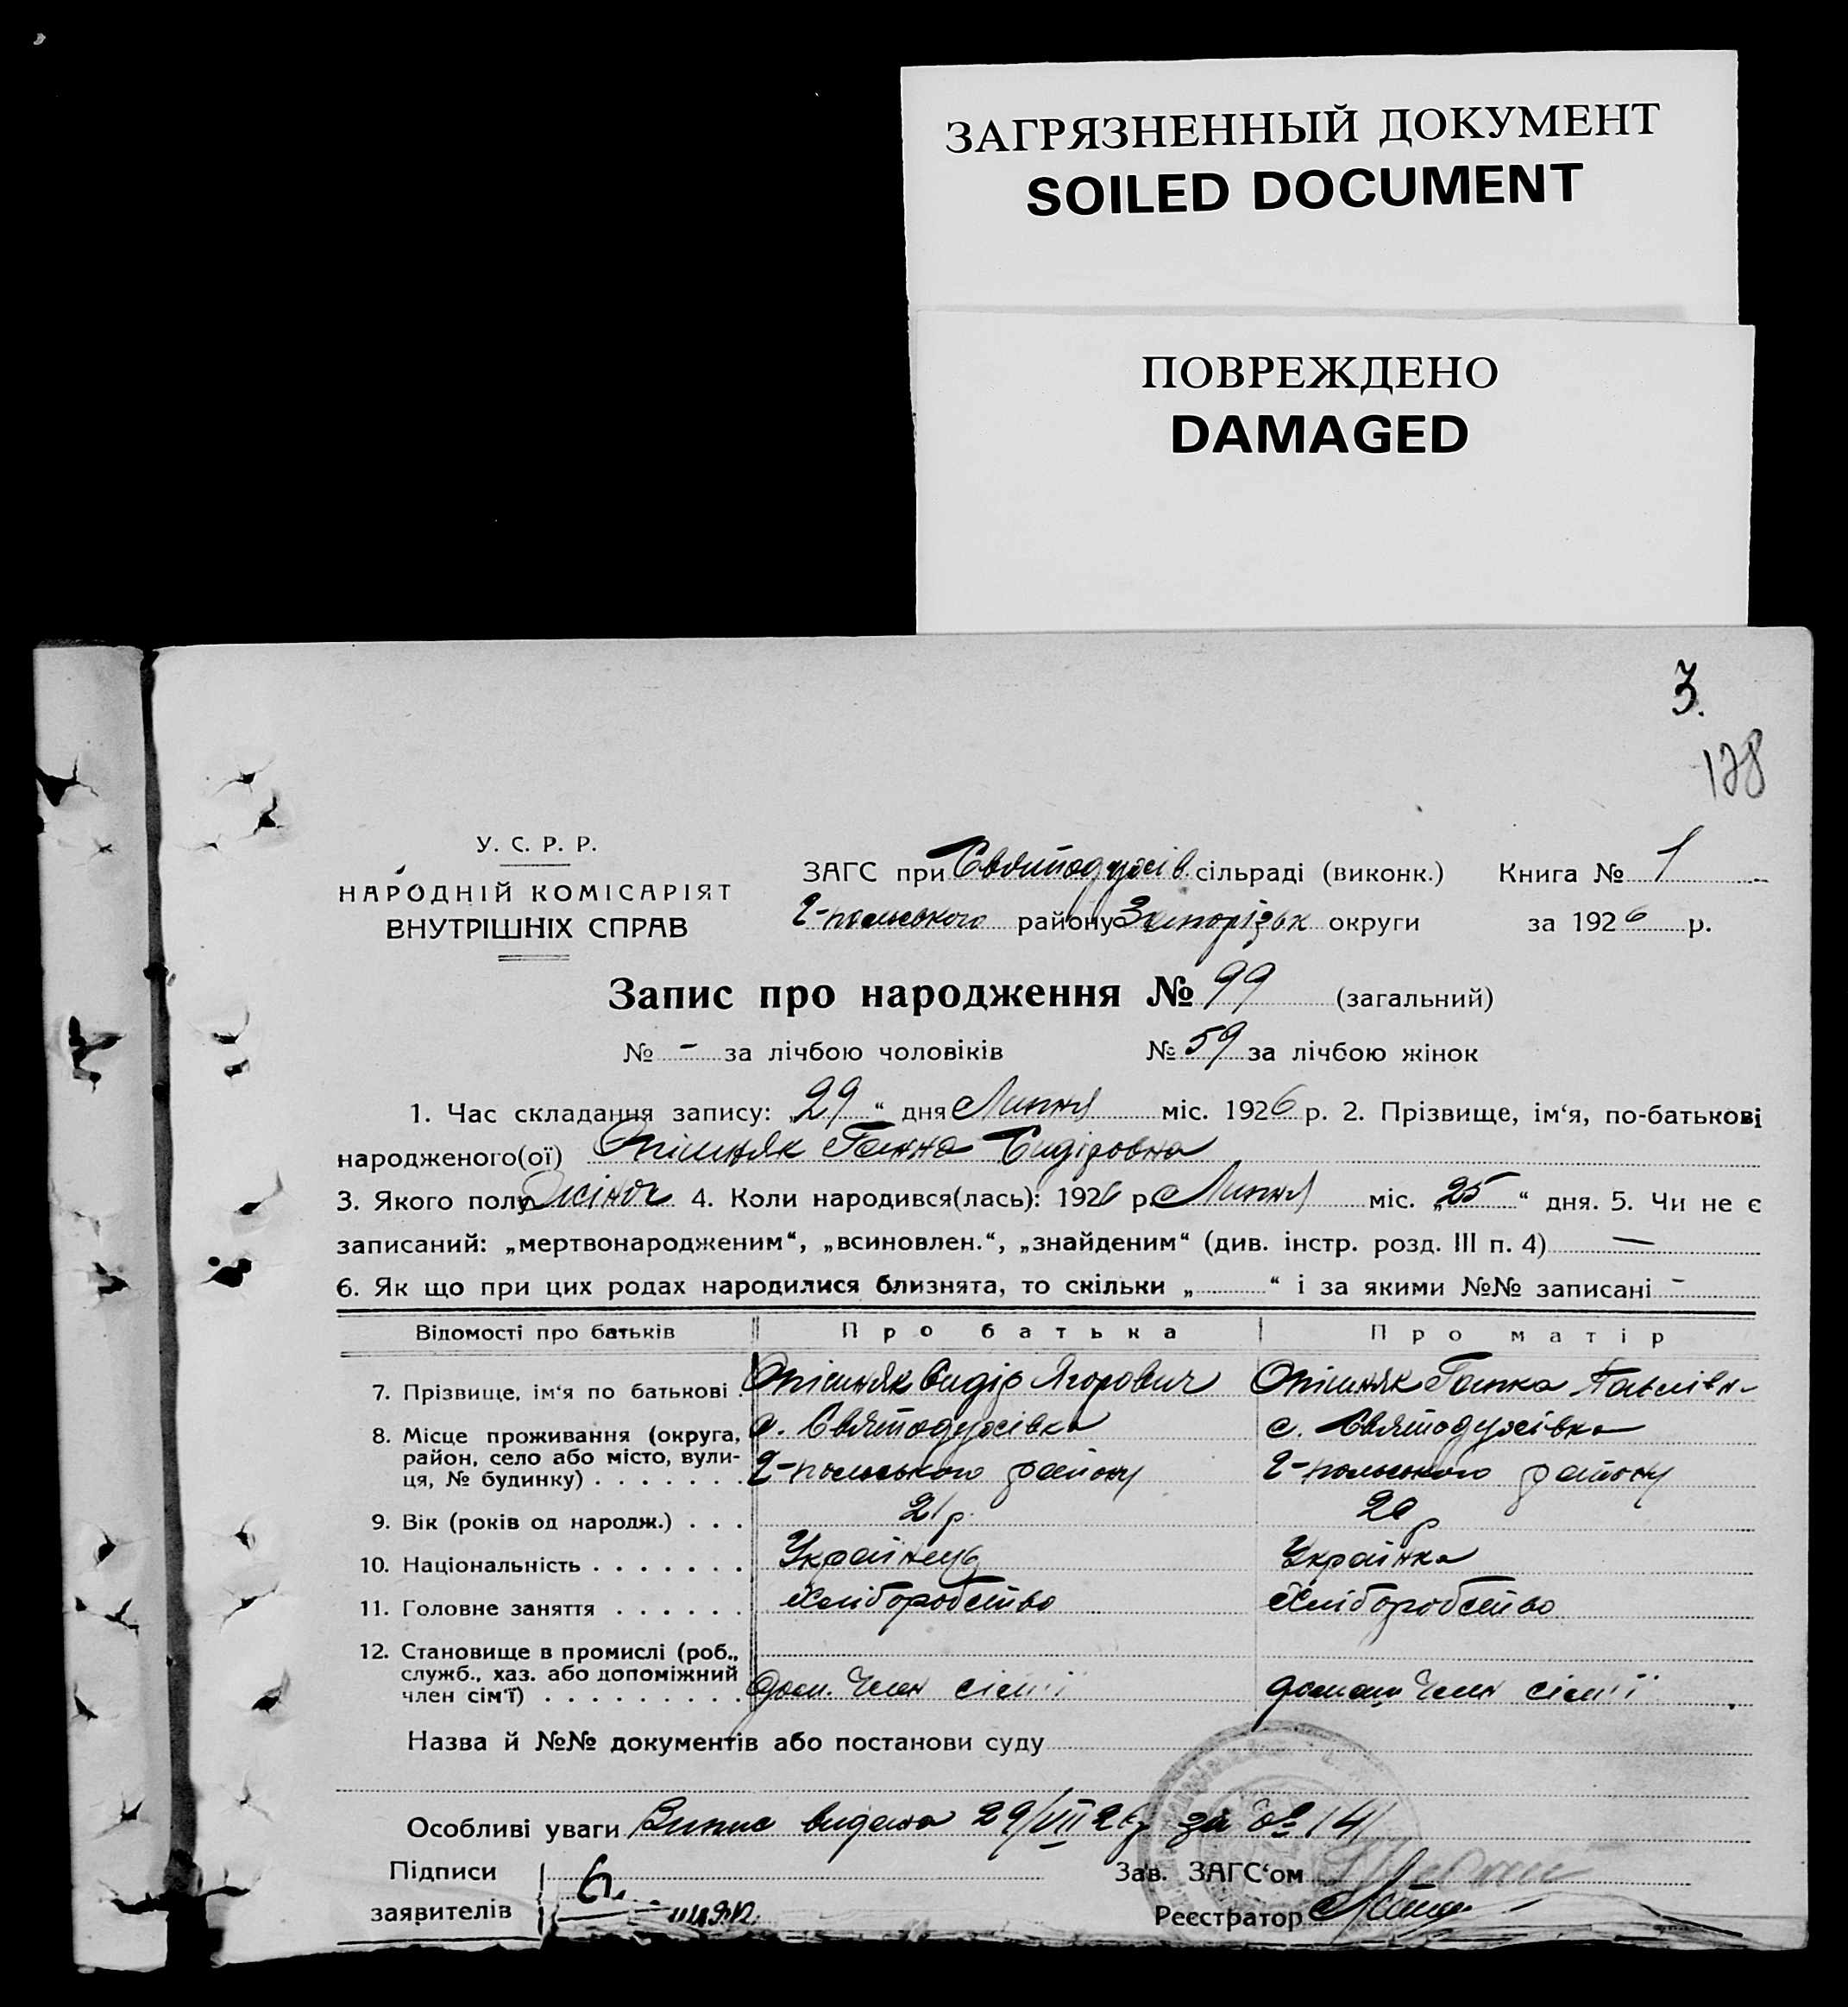 ЗАГРЯЗНЕННЫЙ ДОКУМЕНТ
SOILED DOCUMENT
ПОВРЕЖДЕНО
DAMAGED
3.
128
У. С. Р. Р.
НАРОДНІЙ КОМІСАРІЯТ
ВНУТРІШНІХ СПРАВ
ЗАГС при Святодухів. сільраді (виконк.) Книга № 1
2-польського району Запорізьк округи за 1926 р.
Запис про народження № 99 (загальний)
№ - за лічбою чоловіків № 59 за лічбою жінок
1. Час складання запису: „29“ дня Липня міс. 1926 р. 2. Прізвище, ім‘я, по-батькові
народженого(ої) Опішняк Ганна Сидіровна
3. Якого полу Жіноч 4. Коли народився(лась): 1926 р. Липня міс. „25“ дня. 5. Чи не є
записаний: „мертвонародженим“, „всиновлен.“, „знайденим“ (див. інстр. розд. III п. 4) —
6. Як що при цих родах народилися близнята, то скільки „ “ і за якими №№ записані -
Відомості про батьків Про батька Про матір
7. Прізвище, ім‘я по батькові . Опішняк Сидір Ягорович Опішняк Ганна Павлівн-
8. Місце проживання (округа, с. Святодухівка с. Святодухівка
район, село або місто, вули-
ця, № будинку) . . . . . . . 2-польського району 2-польського району
9. Вік (років од народж.) . . . 21 р. 20 р
10. Національність . . . . . . . Українець Українка
11. Головне заняття . . . . . . Хліборобство Хліборобство
12. Становище в промислі (роб.,
служб., хаз. або допоміжний
член сім‘ї) . . . . . . . . . член сім'ї член сім'ї
Назва й №№ документів або постанови суду
Особливі уваги Випис видана 29/VII 26р за № 141
Підписи
заявителів
Зав. ЗАГС‘ом
Реєстратор